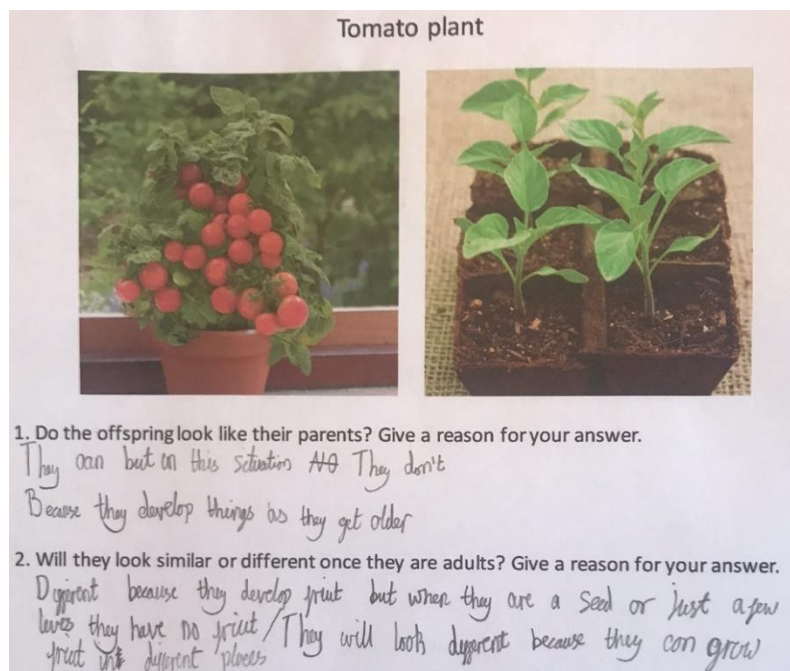 Tomato plant
1. Do the offspring look like their parents? Give a reason for your answer.
They can but on this situation No They don't
Because they develop things as they get older
2. Will they look similar or different once they are adults? Give a reason for your answer.
Different because they develop fruit but when they are a seed or just a few
leves they have no fruit / They will look different because they can grow
fruit in different places